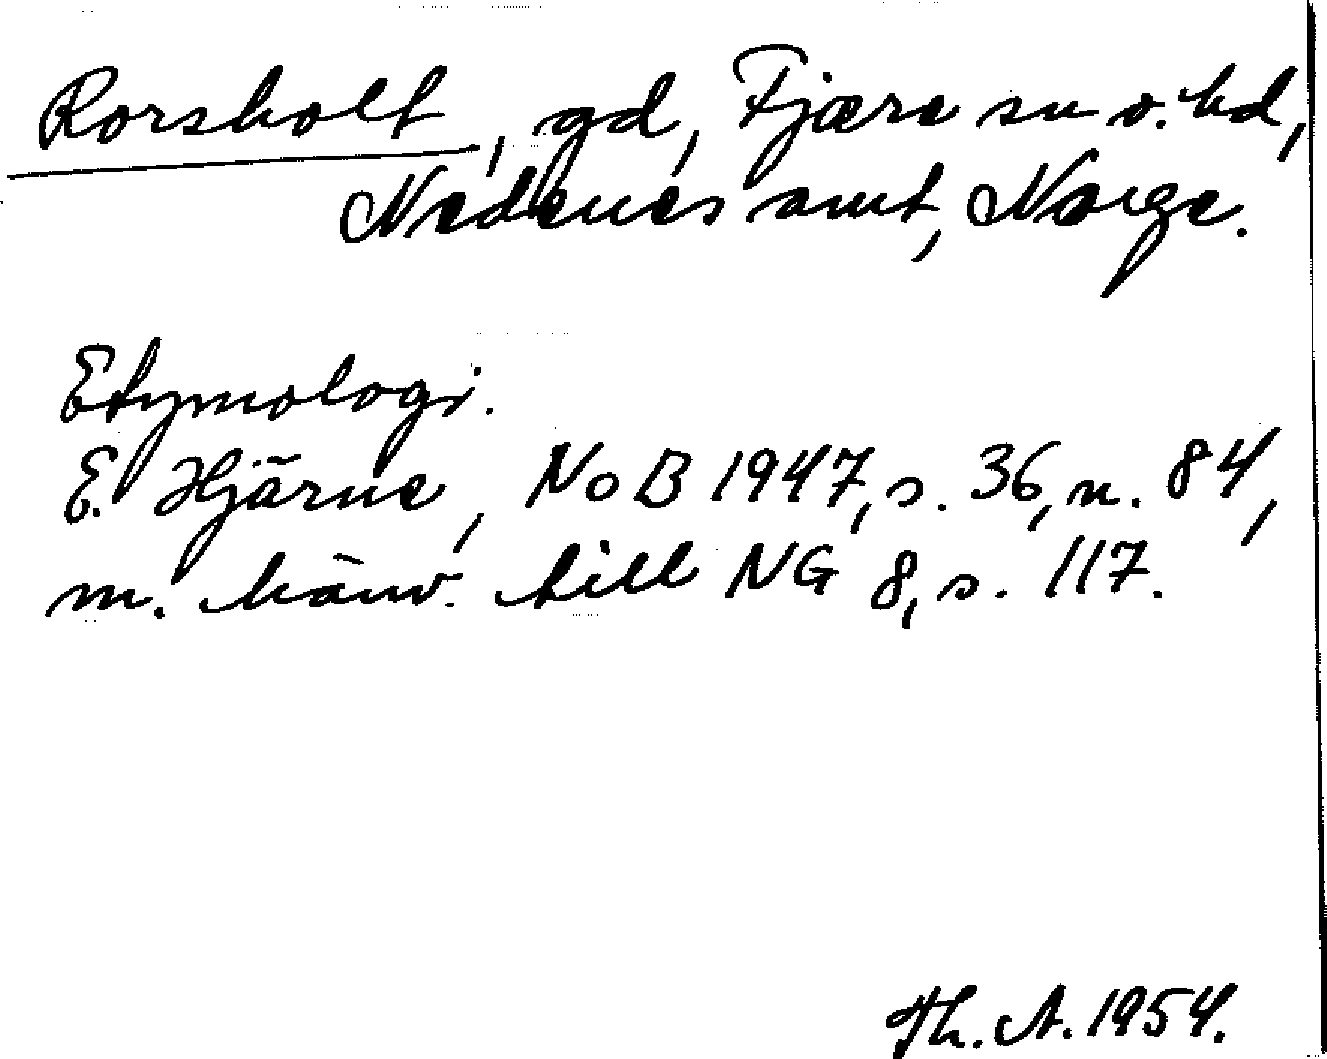 Rorsholt, gd, Fjære sn o. hd,
Nedenes amt, Norge.
Etymologi.
E. Hjärne, NoB 1947, s. 36, n. 84,
m. hänv. till NG 8, s. 117.
Th. A. 1954.